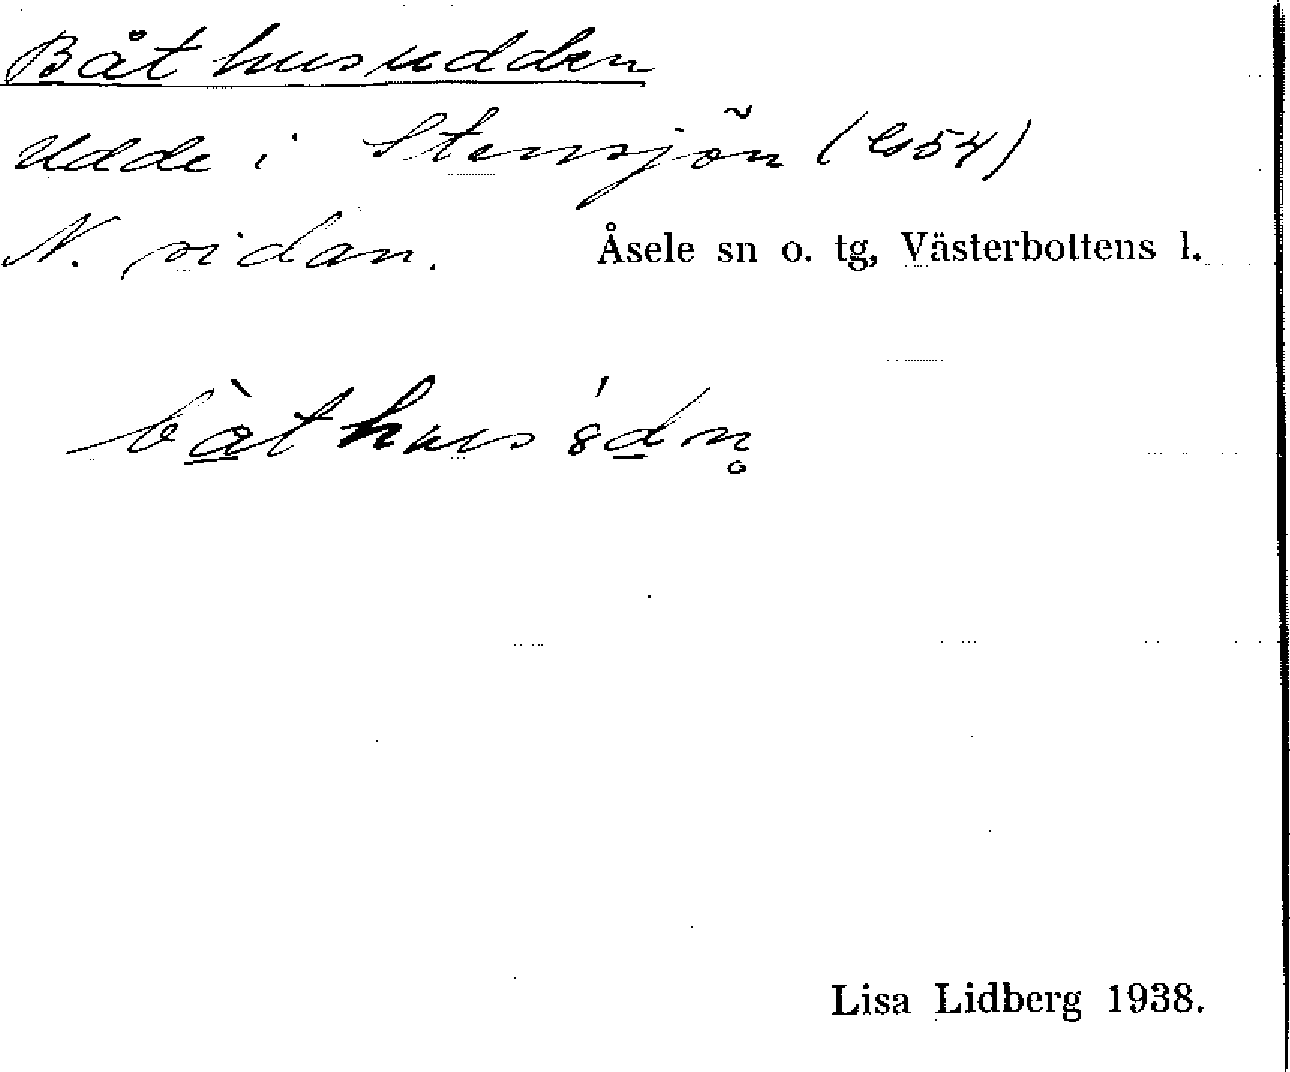 Båthusudden
Udde i Stensjön (G54)
N. sidan.
Åsele sn o. tg, Västerbottens l.
Lisa Lidberg 1938.